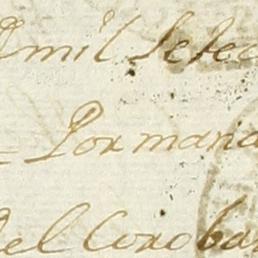 mil Setec
Por mana
del Coroba